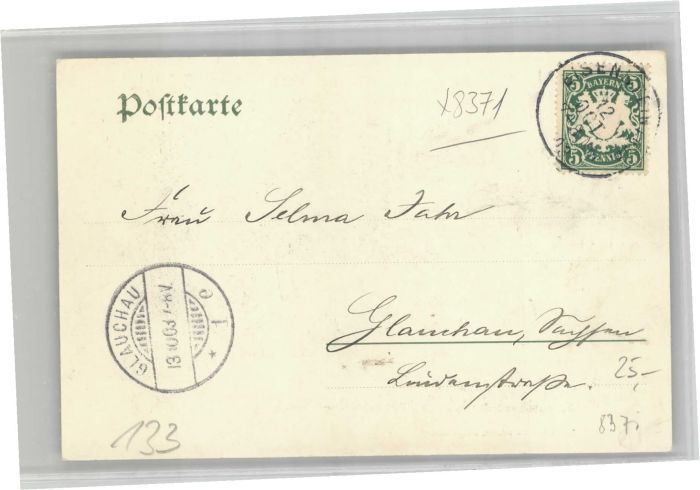 Postkarte
x8371
5 BAYERN 5
5 PFENNIG 5
12 OCT
Frau Selma Jahr
GLAUCHAU
13 10 03 7-8 V.
Glauchau, Sachsen
Lindenstraße.
25,-
133